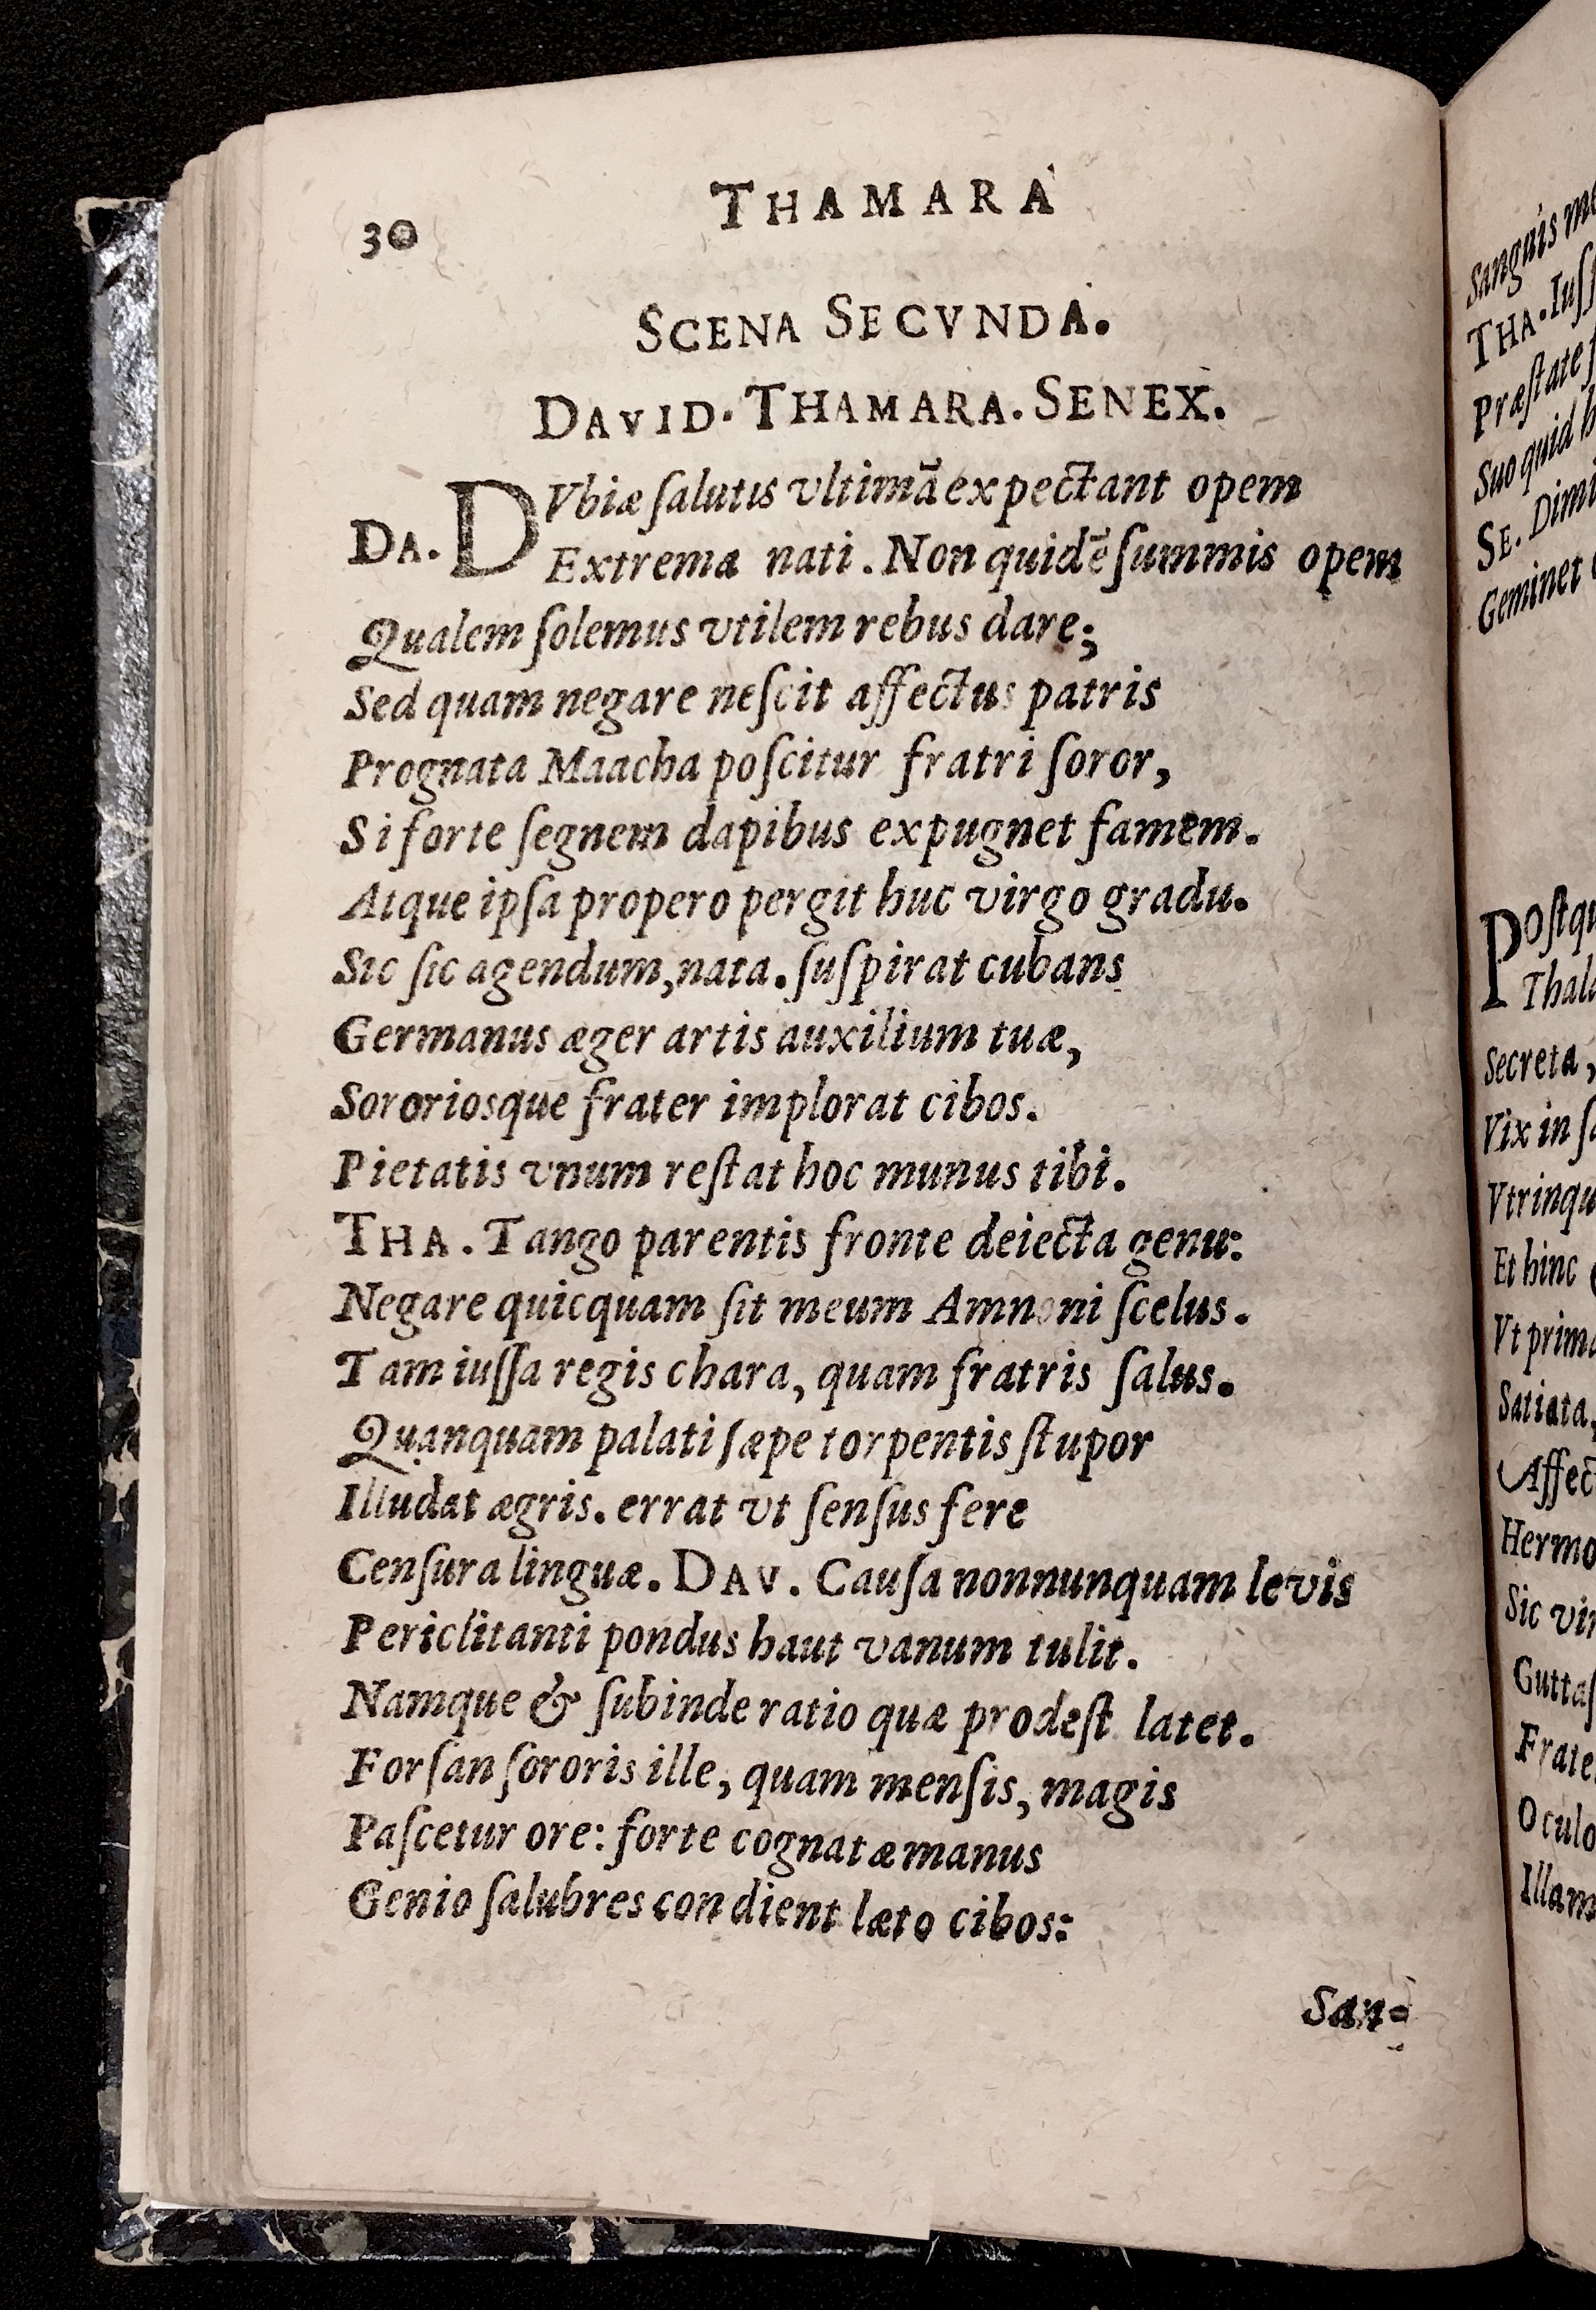 30
THAMARA
SCENA SECVNDA.
DAVID. THAMARA. SENEX.
DA. DVbiæ ſalutis vltimā expectant opem
Extrema nati. Non quidē ſummis opem
Qualem ſolemus vtilem rebus dare;
Sed quam negare neſcit affectus patris
Prognata Maacha poſcitur fratri ſoror,
Si forte ſegnem dapibus expugnet famem.
Atque ipſa propero pergit huc virgo gradu.
Sic ſic agendum, nata. ſuſpirat cubans
Germanus æger artis auxilium tuæ,
Sororiosque frater implorat cibos.
Pietatis vnum reſtat hoc munus tibi.
THA. Tango parentis fronte deiecta genu:
Negare quicquam ſit meum Amnoni ſcelus.
Tam iuſſa regis chara, quam fratris ſalus.
Quanquam palati ſæpe torpentis ſtupor
Illudat ægris. errat vt ſenſus fere
Cenſura linguæ. DAV. Cauſa nonnunquam levis
Periclitanti pondus haut vanum tulit.
Namque & ſubinde ratio quæ prodeſt latet.
Forſan ſororis ille, quam menſis, magis
Paſcetur ore: forte cognatæ manus
Genio ſalubres condient læto cibos:
San-
Sanguis
THA. Iuſſ
Præſtate
Suo quid
SE. Dimi
Geminet
Poſtqu
Thala
Secreta,
Vix in
Vtrinqu
Et hinc
Vt prim
Satiata,
Affec
Hermo
Sic vir
Guttaſ
Frate
Oculo
Illam